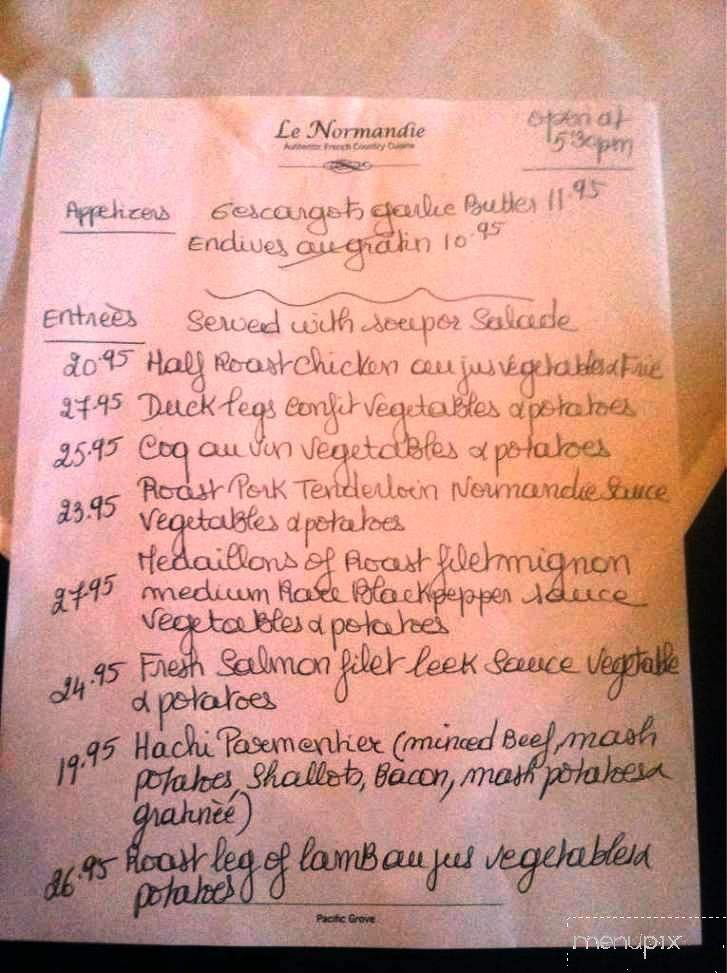 Le Normandie
Authentic French Country Cuisine
open at
5:30pm
Appetizers 6 escargots garlic Butter 11.95
Endives au gratin 10.95
Entrèès Served with soup or Salade
20.95 Half Roast chicken au jus vegetables & Frie
27.95 Duck legs confit vegetables & potatoes
25.95 Coq au vin vegetables & potatoes
23.95 Roast Pork Tenderloin Normandie Sauce
vegetables & potatoes
27.95 Medaillons of Roast filet mignon
medium Rare Black pepper sauce
vegetables & potatoes
24.95 Fresh Salmon filet leek Sauce vegetable
& potatoes
19.95 Hachi Parmentier (minced Beef, mash
potatoes, Shallots, Bacon, mash potatoes &
gratinèè)
26.95 Roast leg of lamb au jus vegetables &
potatoes
Pacific Grove
menupix